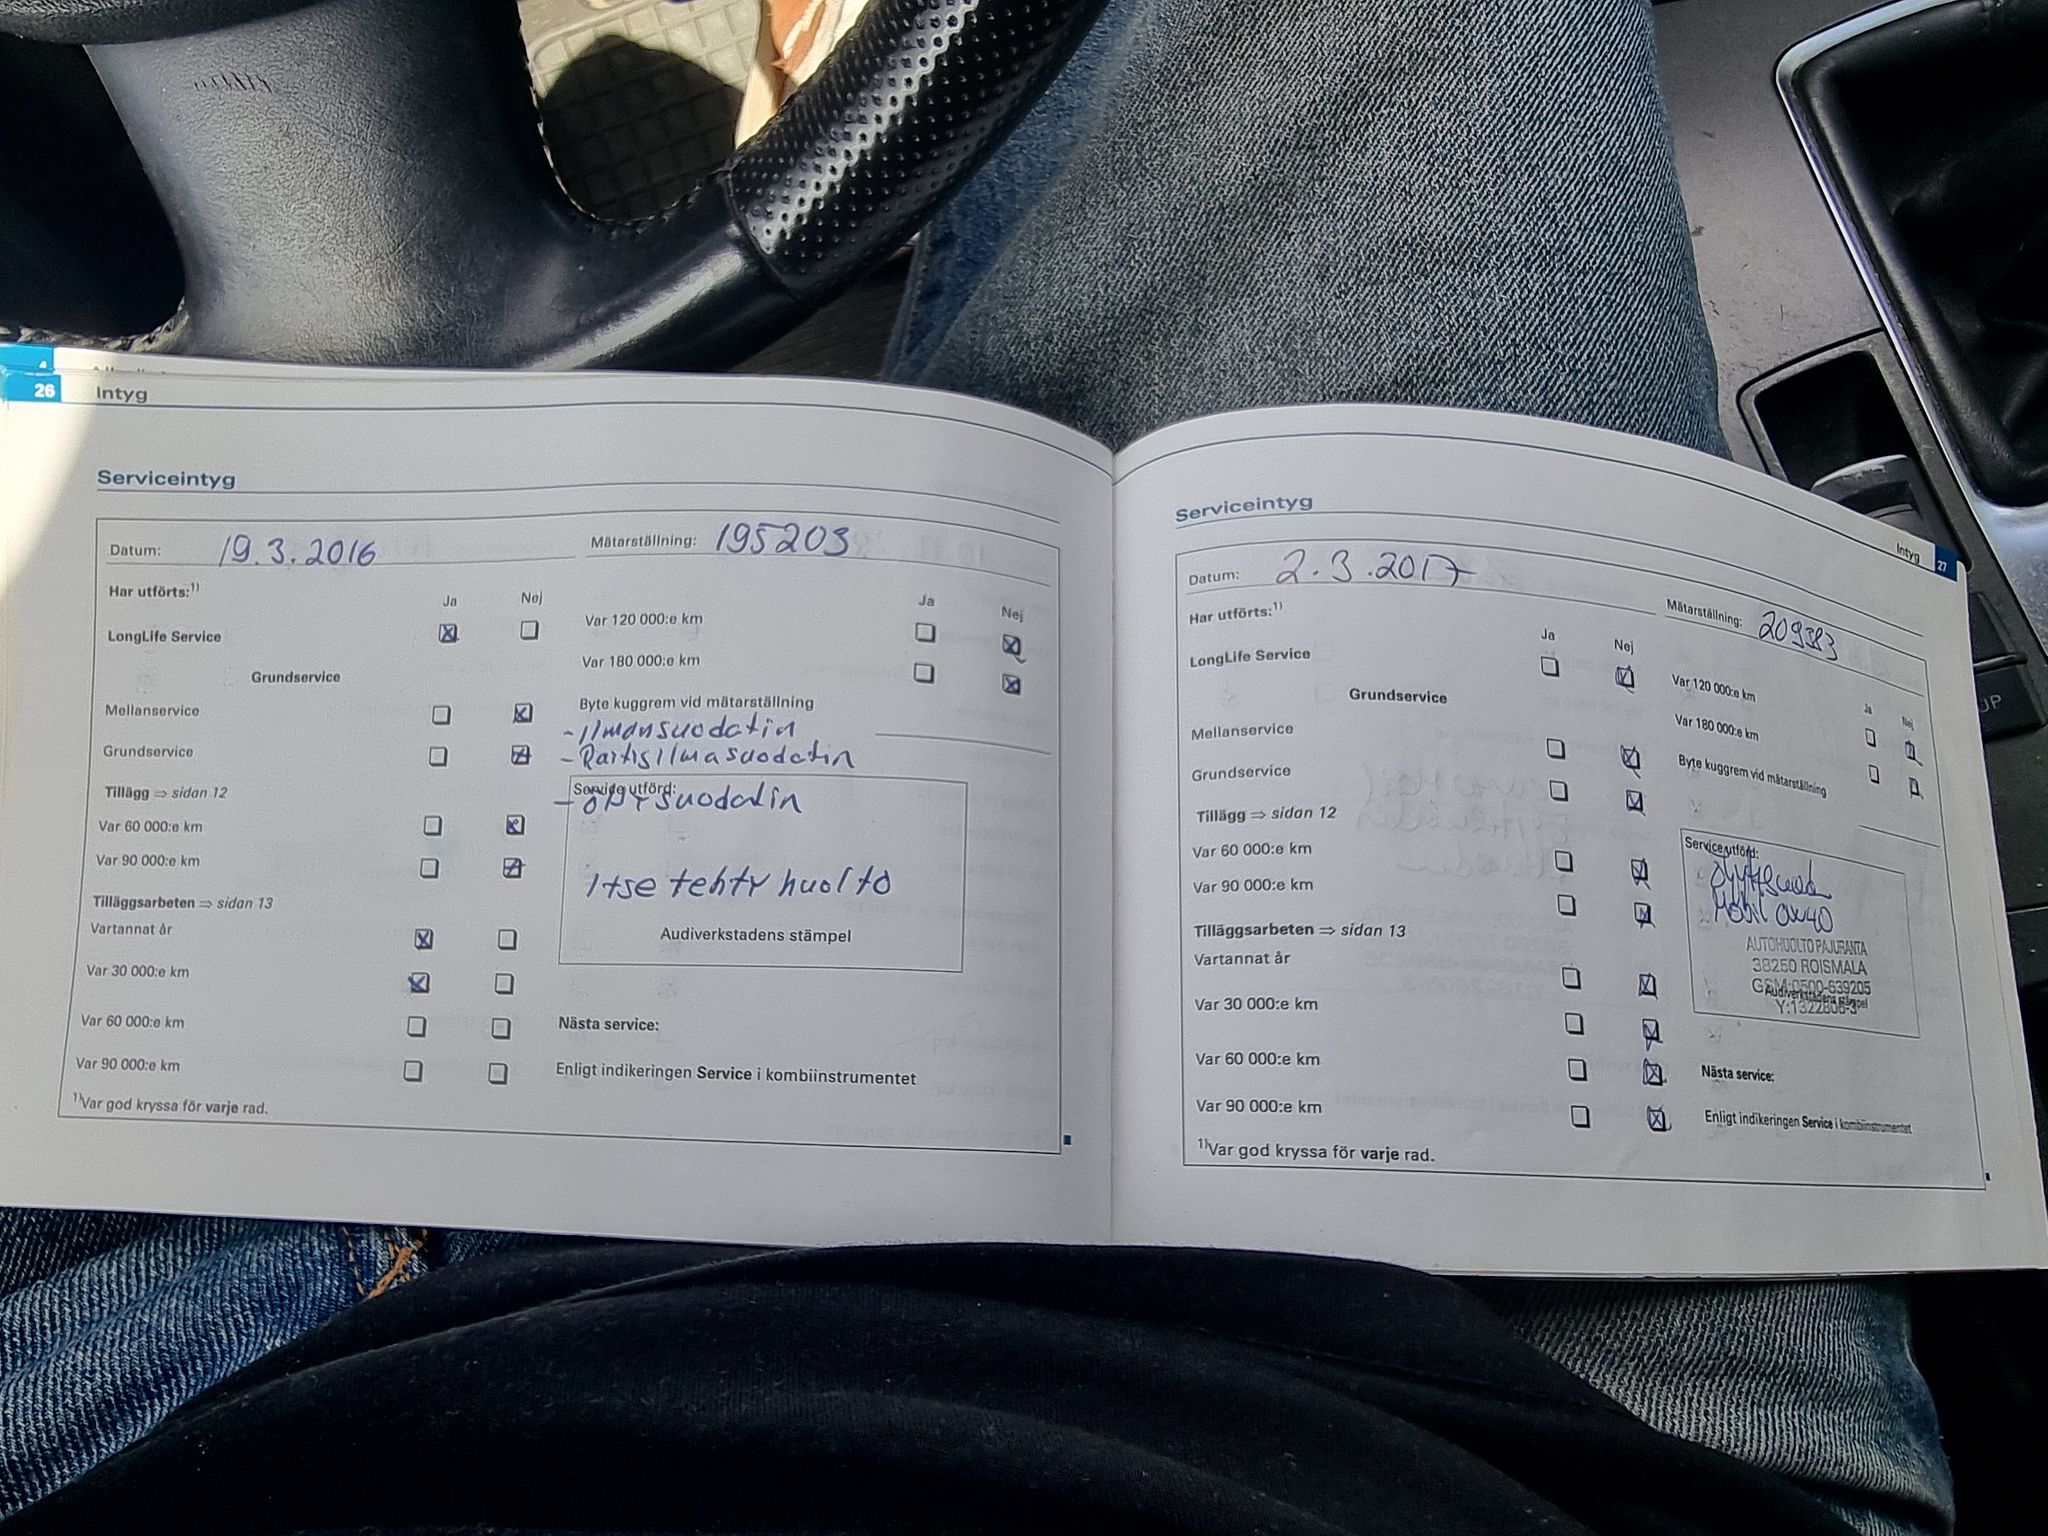 4
26 Intyg
Serviceintyg
Datum: 19.3.2016 Mätarställning: 195203
Har utförts:1)
Ja Nej
LongLife Service
Grundservice
Mellanservice
Grundservice
Tillägg ⇒ sidan 12
Var 60 000:e km
Var 90 000:e km
Tilläggsarbeten ⇒ sidan 13
Vartannat år
Var 30 000:e km
Var 60 000:e km
Var 90 000:e km
1)Var god kryssa för varje rad.
Ja Nej
Var 120 000:e km
Var 180 000:e km
Byte kuggrem vid mätarställning
-Ilmansuodatin
-Raitisilmasuodatin
Service utförd:
-öljysuodatin
Itse tehty huolto
Audiverkstadens stämpel
Nästa service:
Enligt indikeringen Service i kombiinstrumentet
Intyg 27
Serviceintyg
Datum: 2.3.2017 Mätarställning: 209383
Har utförts:1)
Ja Nej
LongLife Service
Grundservice
Mellanservice
Grundservice
Tillägg ⇒ sidan 12
Var 60 000:e km
Var 90 000:e km
Tilläggsarbeten ⇒ sidan 13
Vartannat år
Var 30 000:e km
Var 60 000:e km
Var 90 000:e km
1)Var god kryssa för varje rad.
Ja Nej
Var 120 000:e km
Var 180 000:e km
Byte kuggrem vid mätarställning
Service utförd:
Mobil 0W40
AUTOHUOLTO PAJURANTA
38250 ROISMALA
GSM:0500-639205
Audiverkstadens stämpel
Y:1322806-3
Nästa service:
Enligt indikeringen Service i kombiinstrumentet